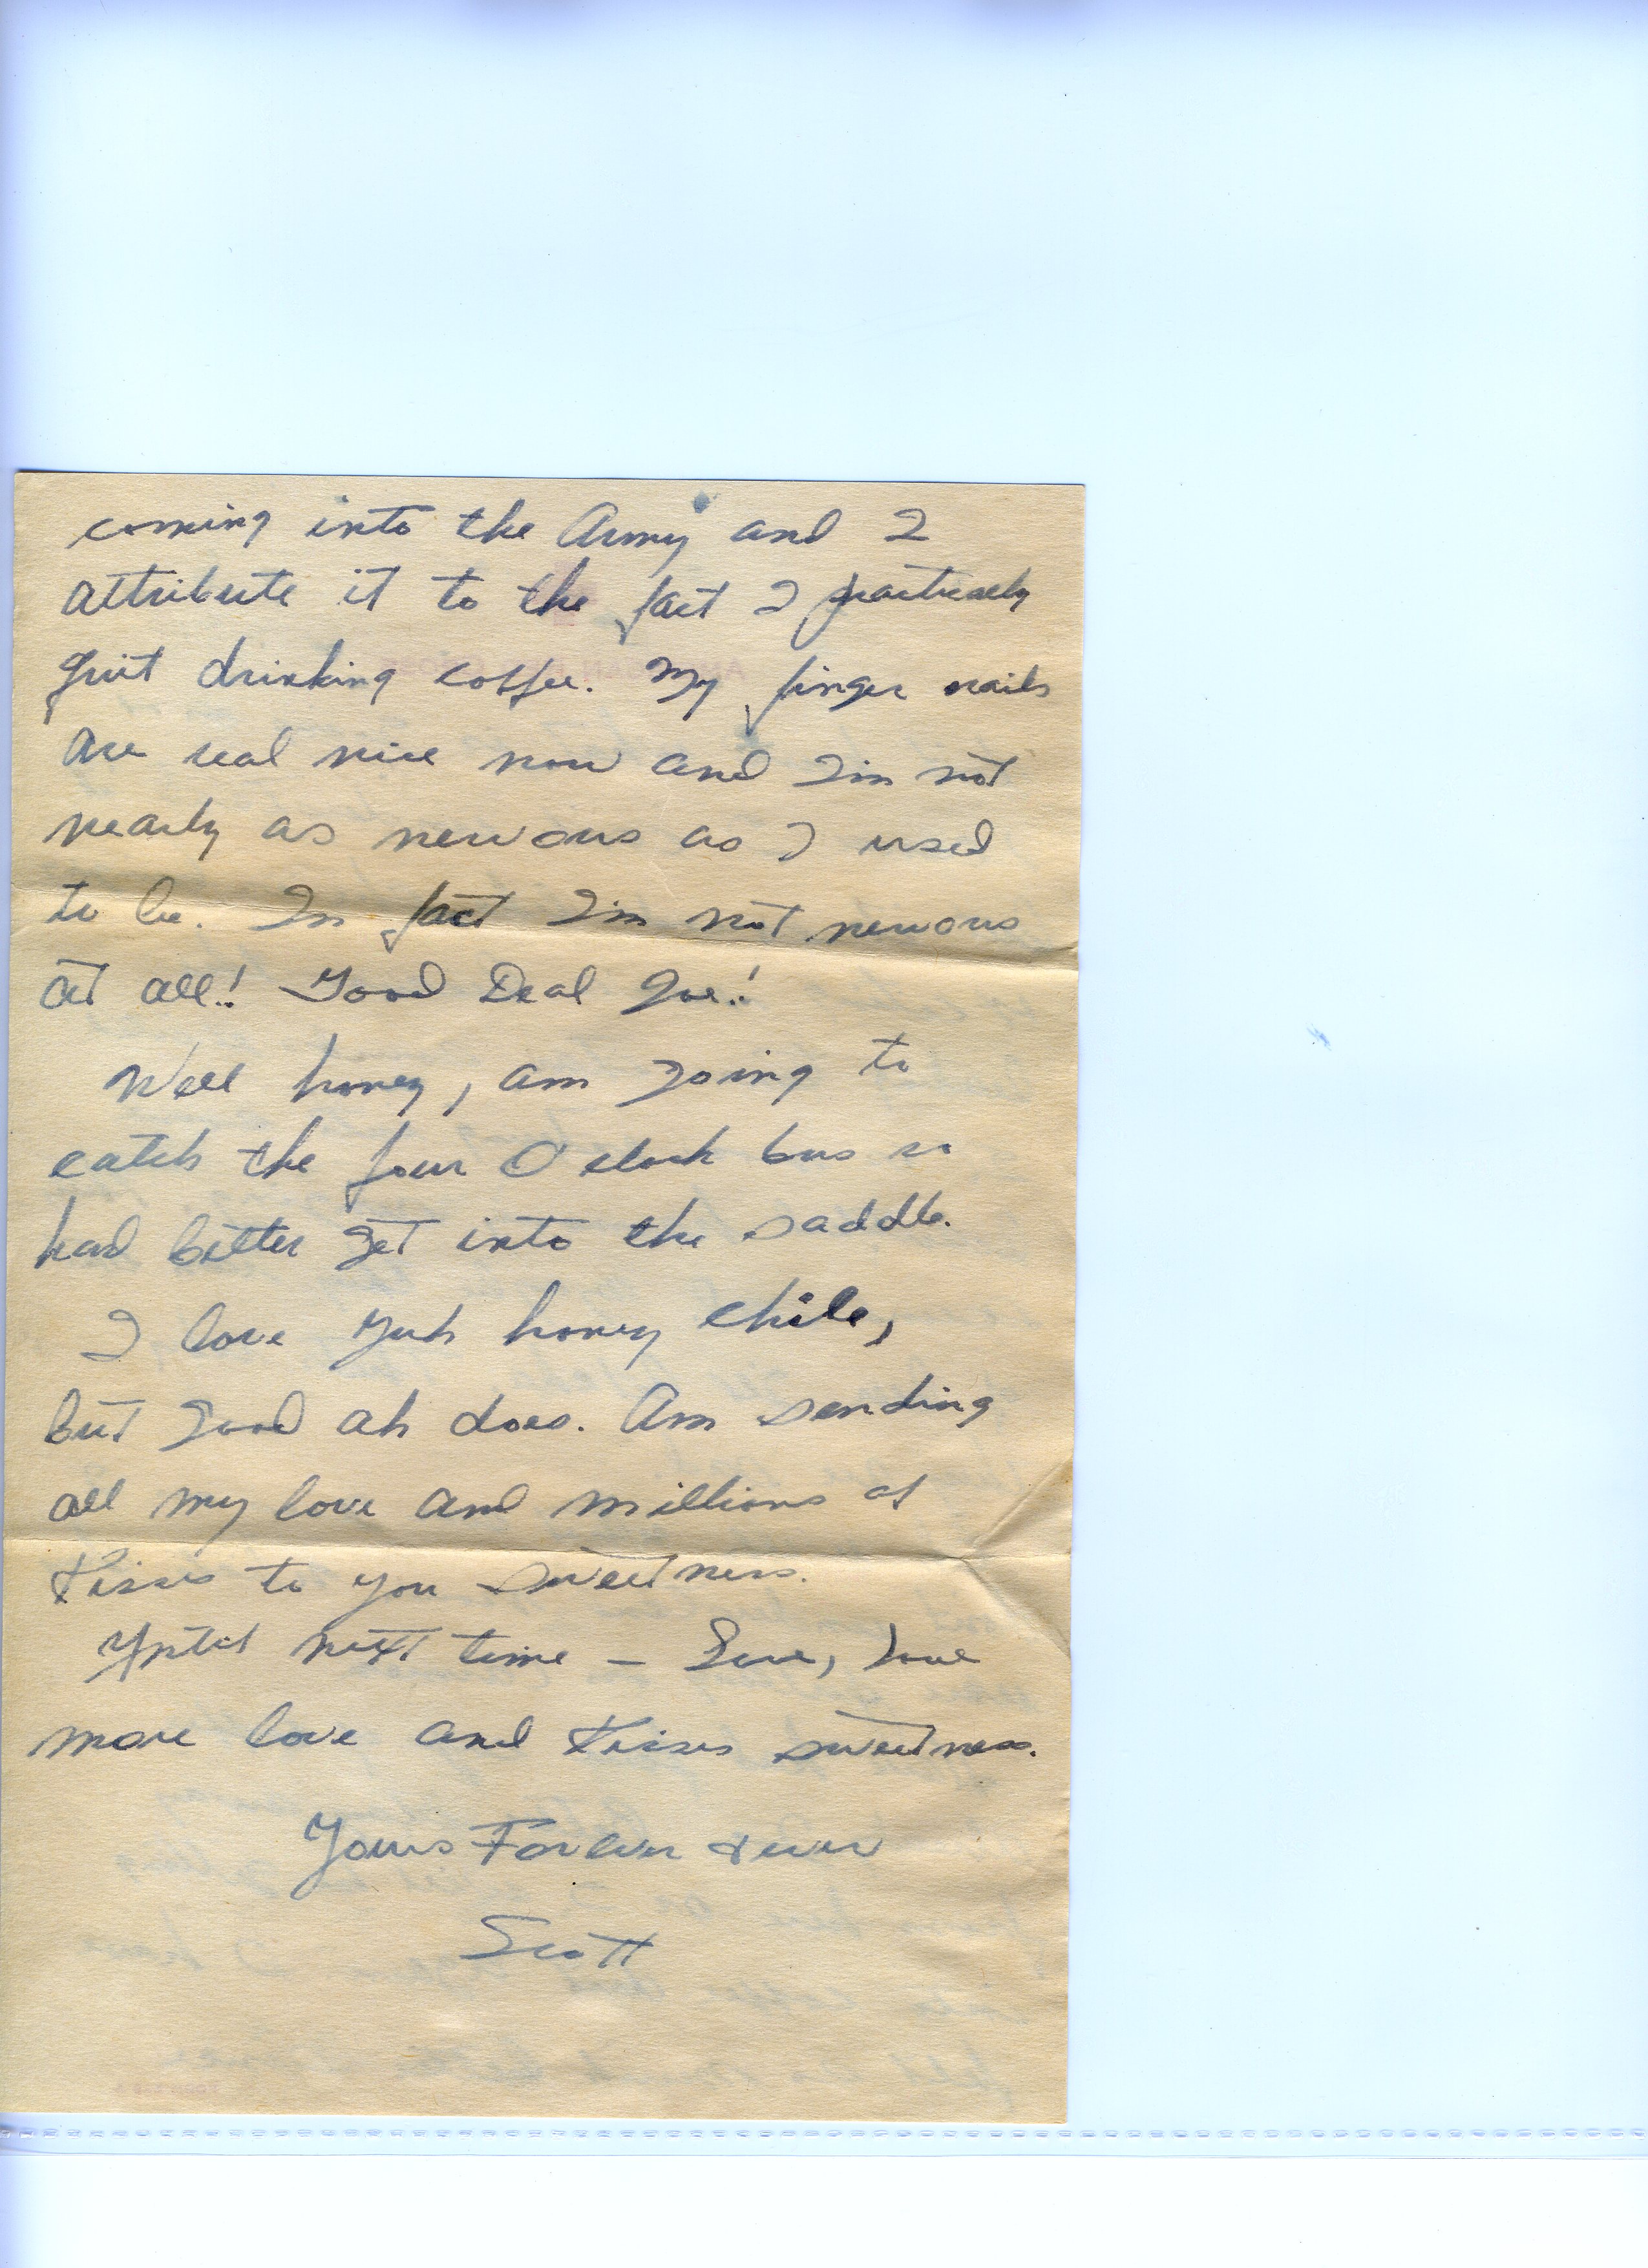 coming into the Army and I
attribute it to the fact I practicaly
quit drinking coffee. My finger nails
are real nice now and I'm not
nearly as nervous as I used
to be. In fact I'm not nervous
at all!! Good Deal Joe!!
Well honey, am going to
catch the four O'clock bus so
had better get into the saddle.
I love yuh honey chile,
but good ah does. Am sending
all my love and millions of
Kisses to you sweetness.
Until next time – Love, love
more love and Kisses sweetness.
Yours Forever & ever
Scott